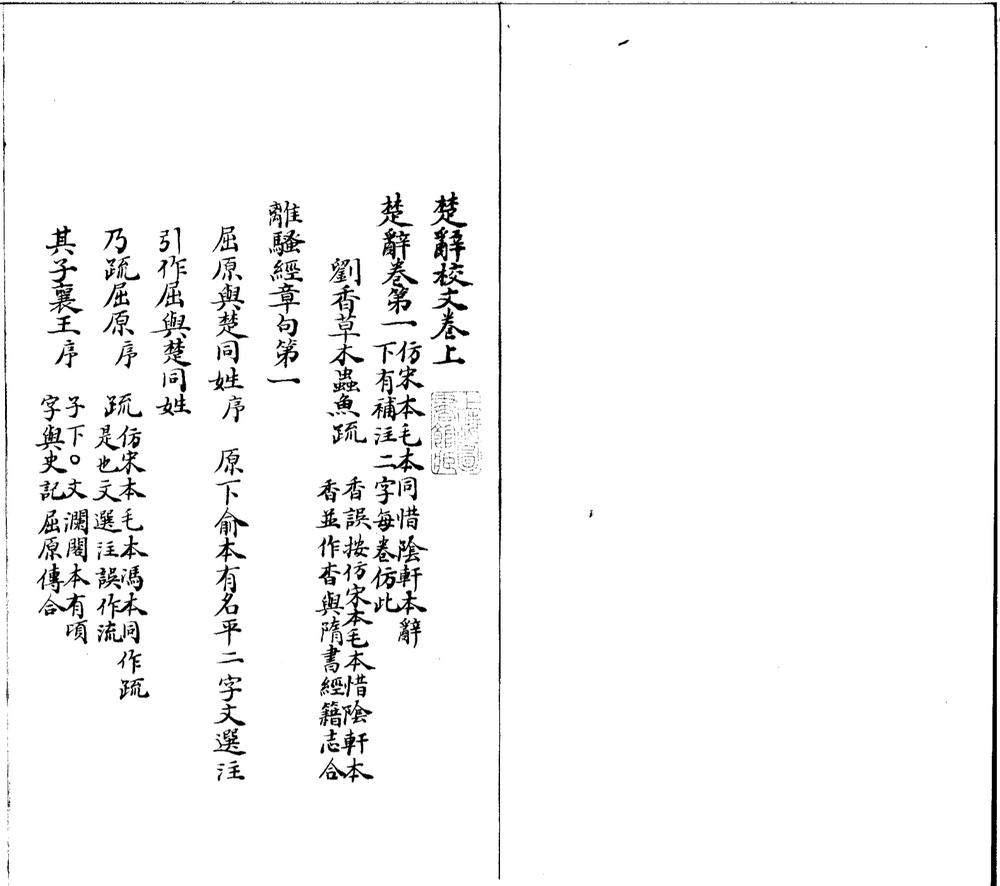 楚辭校文卷上
上海圖書館藏
楚辭卷第一
仿宋本毛本同惜陰軒本辭
下有補注二字每卷仿此
劉香草木蟲魚疏
香誤按仿宋本毛本惜陰軒本
香並作杳與隋書經籍志合
離騷經章句第一
屈原與楚同姓序 原下俞本有名平二字文選注
引作屈與楚同姓
乃疏屈原序
疏仿宋本毛本馮本同作疏
疏是也文選注誤作流
其子襄王序
子下。文瀾閣本有頃
字與史記屈原傳合